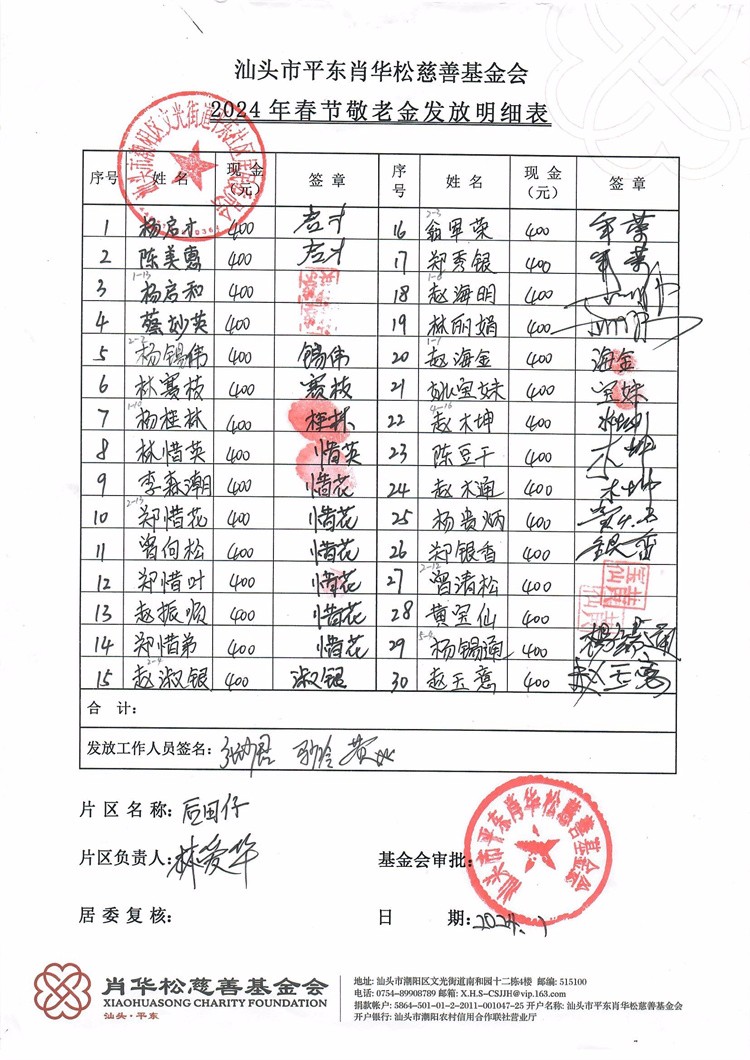 汕头市平东肖华松慈善基金会
2024年春节敬老金发放明细表
序号 姓名 现金（元） 签章 序号 姓名 现金（元） 签章
1 杨启才 400 启才 16 翁单荣 400 单荣
2 陈美惠 400 启才 17 郑秀银 400 单荣
3 杨启和 400 18 赵海明 400
4 蔡妙英 400 19 林丽娟 400
5 杨锡伟 400 锡伟 20 赵海金 400 海金
6 林赛枝 400 赛枝 21 姚宝妹 400 宝妹
7 杨桂林 400 桂林 22 赵木坤 400 木坤
8 林惜英 400 惜英 23 陈豆干 400 木坤
9 李森潮 400 惜花 24 赵木通 400 木坤
10 郑惜花 400 惜花 25 杨贵炳 400
11 曾向松 400 惜花 26 郑银香 400 银香
12 郑惜叶 400 惜花 27 曾清松 400
13 赵振顺 400 惜花 28 黄宝仙 400
14 郑惜弟 400 惜花 29 杨锡通 400 杨锡通
15 赵淑银 400 淑银 30 赵玉意 400 赵玉意
合计：
发放工作人员签名：
片区名称：后田仔
片区负责人：林爱华 基金会审批：
汕头市平东肖华松慈善基金会
居委复核： 日期：2024.1
肖华松慈善基金会
XIAOHUASONG CHARITY FOUNDATION
汕头·平东
地址：汕头市潮阳区文光街道南和园十二栋4楼 邮编：515100
电话：0754-89908789 邮箱：X.H.S-CSJJH@vip.163.com
捐款帐户：5864-501-01-2-2011-001047-25 开户名称：汕头市平东肖华松慈善基金会
开户银行：汕头市潮阳农村信用合作联社营业厅